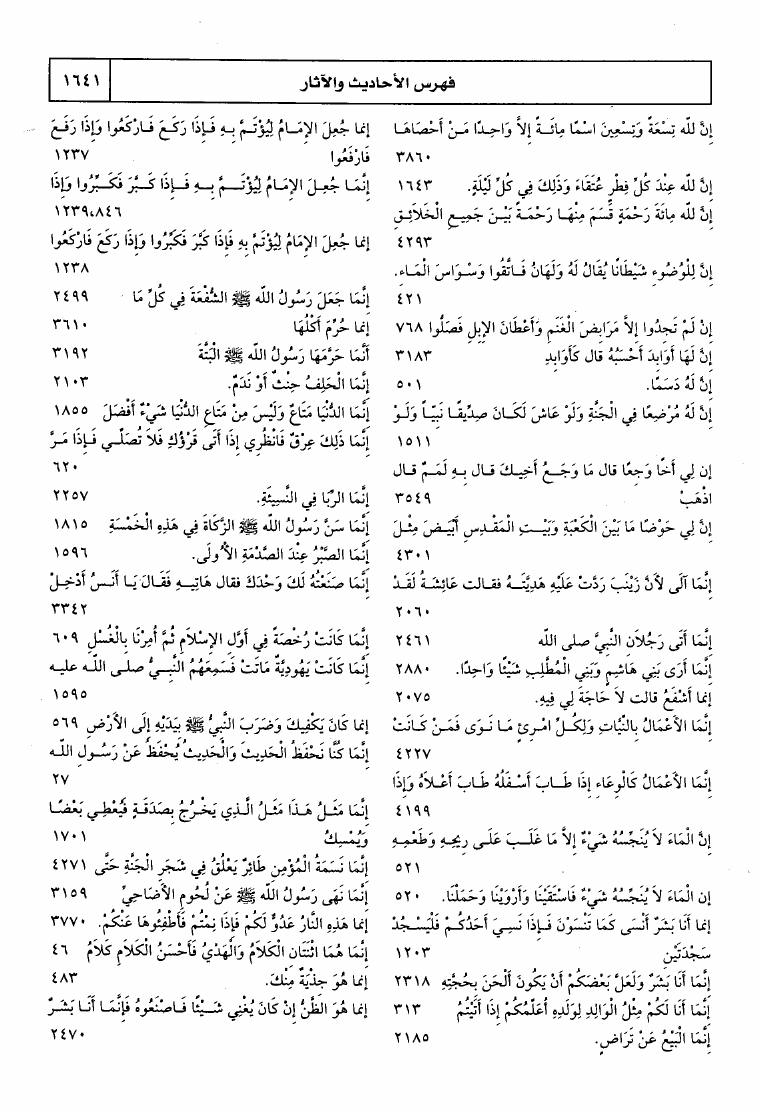 فهرس الأحاديث والآثار
١٦٤١
إِنَّ لله تِسْعَةً وَتِسْعِينَ اسْمًا مِائَةً إِلاَّ وَاحِدًا مَنْ أَحْصَاهَا
٣٨٦٠
إِنَّ لله عِنْدَ كُلِّ فِطْرٍ عُتَقَاءَ وَذَلِكَ فِي كُلِّ لَيْلَةٍ. ١٦٤٣
إِنَّ لله مِائَةَ رَحْمَةٍ قَسَمَ مِنْهَا رَحْمَةً بَيْنَ جَمِيعِ الْخَلاَئِقِ
٤٢٩٣
إِنَّ لِلْوُضُوءِ شَيْطَانًا يُقَالُ لَهُ وَلَهَانُ فَاتَّقُوا وَسْوَاسَ الْمَاءِ.
٤٢١
إِنْ لَمْ تَجِدُوا إِلاَّ مَرَابِضَ الْغَنَمِ وَأَعْطَانَ الإِبِلِ فَصَلُّوا ٧٦٨
إِنَّ لَهَا أَوَابِدَ أَحْسَبُهُ قال كَأَوَابِدِ ٣١٨٣
إِنَّ لَهُ دَسَمًا. ٥٠١
إِنَّ لَهُ مُرْضِعًا فِي الْجَنَّةِ وَلَوْ عَاشَ لَكَانَ صِدِّيقًا نَبِيًّا وَلَوْ
١٥١١
إن لِي أَخًا وَجِعًا قال مَا وَجَعُ أَخِيكَ قال بِهِ لَمَمٌ قال
اذْهَبْ ٣٥٤٩
إِنَّ لِي حَوْضًا مَا بَيْنَ الْكَعْبَةِ وَبَيْتِ الْمَقْدِسِ أَبْيَضَ مِثْلَ
٤٣٠١
إِنَّمَا آلَى لأَنَّ زَيْنَبَ رَدَّتْ عَلَيْهِ هَدِيَّتَهُ فقالت عَائِشَةُ لَقَدْ
٢٠٦٠
إِنَّمَا أَتَى رَجُلاَنِ النَّبِيَّ صلى الله ٢٤٦١
إِنَّمَا أَرَى بَنِي هَاشِمٍ وَبَنِي الْمُطَّلِبِ شَيْئًا وَاحِدًا. ٢٨٨٠
إنما أَشْفَعُ قالت لاَ حَاجَةَ لِي فِيهِ. ٢٠٧٥
إِنَّمَا الأَعْمَالُ بِالنِّيَّاتِ وَلِكُلِّ امْرِئٍ مَا نَوَى فَمَنْ كَانَتْ
٤٢٢٧
إِنَّمَا الأَعْمَالُ كَالْوِعَاءِ إِذَا طَابَ أَسْفَلُهُ طَابَ أَعْلاَهُ وَإِذَا
٤١٩٩
إِنَّ الْمَاءَ لاَ يُنَجِّسُهُ شَيْءٌ إِلاَّ مَا غَلَبَ عَلَى رِيحِهِ وَطَعْمِهِ
٥٢١
إن الْمَاءَ لاَ يُنَجِّسُهُ شَيْءٌ فَاسْتَقَيْنَا وَأَرْوَيْنَا وَحَمَلْنَا. ٥٢٠
إنما أَنَا بَشَرٌ أَنْسَى كَمَا تَنْسَوْنَ فَإِذَا نَسِيَ أَحَدُكُمْ فَلْيَسْجُدْ
سَجْدَتَيْنِ ١٢٠٣
إِنَّمَا أَنَا بَشَرٌ وَلَعَلَّ بَعْضَكُمْ أَنْ يَكُونَ أَلْحَنَ بِحُجَّتِهِ ٢٣١٨
إِنَّمَا أَنَا لَكُمْ مِثْلُ الْوَالِدِ لِوَلَدِهِ أُعَلِّمُكُمْ إِذَا أَتَيْتُمُ ٣١٣
إِنَّمَا الْبَيْعُ عَنْ تَرَاضٍ. ٢١٨٥
إنما جُعِلَ الإِمَامُ لِيُؤْتَمَّ بِهِ فَإِذَا رَكَعَ فَارْكَعُوا وَإِذَا رَفَعَ
فَارْفَعُوا ١٢٣٧
إِنَّمَا جُعِلَ الإِمَامُ لِيُؤْتَمَّ بِهِ فَإِذَا كَبَّرَ فَكَبِّرُوا وَإِذَا
١٢٣٩،٨٤٦
إنما جُعِلَ الإِمَامُ لِيُؤْتَمَّ بِهِ فَإِذَا كَبَّرَ فَكَبِّرُوا وَإِذَا رَكَعَ فَارْكَعُوا
١٢٣٨
إِنَّمَا جَعَلَ رَسُولُ الله ﷺ الشُّفْعَةَ فِي كُلِّ مَا ٢٤٩٩
إنما حُرِّمَ أَكْلُهَا ٣٦١٠
أَنَّمَا حَرَّمَهَا رَسُولُ الله ﷺ الْبَتَّةَ ٣١٩٢
إِنَّمَا الْحَلِفُ حِنْثٌ أَوْ نَدَمٌ. ٢١٠٣
إِنَّمَا الدُّنْيَا مَتَاعٌ وَلَيْسَ مِنْ مَتَاعِ الدُّنْيَا شَيْءٌ أَفْضَلَ ١٨٥٥
إِنَّمَا ذَلِكَ عِرْقٌ فَانْظُرِي إِذَا أَتَى قَرْؤُكِ فَلاَ تُصَلِّي فَإِذَا مَرَّ
٦٢٠
إِنَّمَا الرِّبَا فِي النَّسِيئَةِ. ٢٢٥٧
إِنَّمَا سَنَّ رَسُولُ الله ﷺ الزَّكَاةَ فِي هَذِهِ الْخَمْسَةِ ١٨١٥
إِنَّمَا الصَّبْرُ عِنْدَ الصَّدْمَةِ الأُولَى. ١٥٩٦
إِنَّمَا صَنَعْتُهُ لَكَ وَحْدَكَ فقال هَاتِيهِ فَقَالَ يَا أَنَسُ أَدْخِلْ
٣٣٤٢
إِنَّمَا كَانَتْ رُخْصَةً فِي أَوَّلِ الإِسْلاَمِ ثُمَّ أُمِرْنَا بِالْغُسْلِ ٦٠٩
إِنَّمَا كَانَتْ يَهُودِيَّةٌ مَاتَتْ فَسَمِعَهُمُ النَّبِيُّ صلى الله عليه
١٥٩٥
إنما كَانَ يَكْفِيكَ وَضَرَبَ النَّبِيُّ ﷺ بِيَدَيْهِ إِلَى الأَرْضِ ٥٦٩
إِنَّمَا كُنَّا نَحْفَظُ الْحَدِيثَ وَالْحَدِيثُ يُحْفَظُ عَنْ رَسُولِ الله
٢٧
إِنَّمَا مَثَلُ هَذَا مَثَلُ الَّذِي يَخْرُجُ بِصَدَقَةٍ فَيُعْطِي بَعْضًا
وَيُمْسِكُ ١٧٠١
إِنَّمَا نَسَمَةُ الْمُؤْمِنِ طَائِرٌ يَعْلُقُ فِي شَجَرِ الْجَنَّةِ حَتَّى ٤٢٧١
إِنَّمَا نَهَى رَسُولُ الله ﷺ عَنْ لُحُومِ الأَضَاحِيِّ ٣١٥٩
إنما هَذِهِ النَّارُ عَدُوٌّ لَكُمْ فَإِذَا نِمْتُمْ فَأَطْفِئُوهَا عَنْكُمْ. ٣٧٧٠
إِنَّمَا هُمَا اثْنَتَانِ الْكَلاَمُ وَالْهَدْيُ فَأَحْسَنُ الْكَلاَمِ كَلاَمُ ٤٦
إنما هُوَ جِذْيَةٌ مِنْكَ. ٤٨٣
إنما هُوَ الظَّنُّ إِنْ كَانَ يُغْنِي شَيْئًا فَاصْنَعُوهُ فَإِنَّمَا أَنَا بَشَرٌ
٢٤٧٠